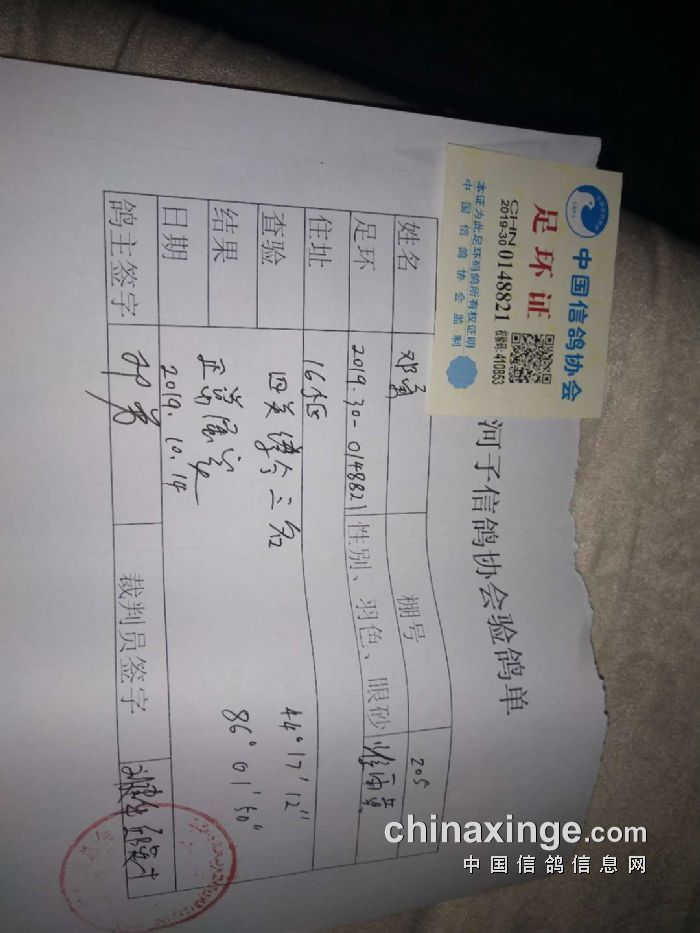 中国信鸽协会
足环证
CHN
2019-30 0148821
校验码:410853
本证为此足环码鸽所有权证明
中国信鸽协会监制
河子信鸽协会验鸽单
姓名 邓 棚号 205
足环 2019.30-0148821 性别、羽色、眼砂
住址 16
查验 四关 三名 44°17'12"
结果 86°01'50"
日期 2019.10.14
鸽主签字 邓 裁判员签字
chinaxinge.com
中国信鸽信息网